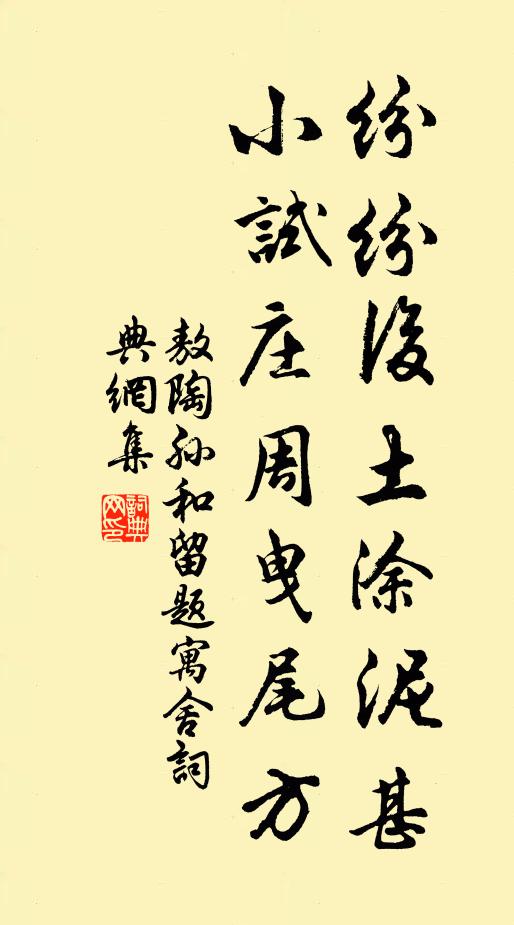 纷纷後土涂泥甚
小試庄周曳尾方
敖陶孙和留题寓舍詞
典網集
詞典
网印